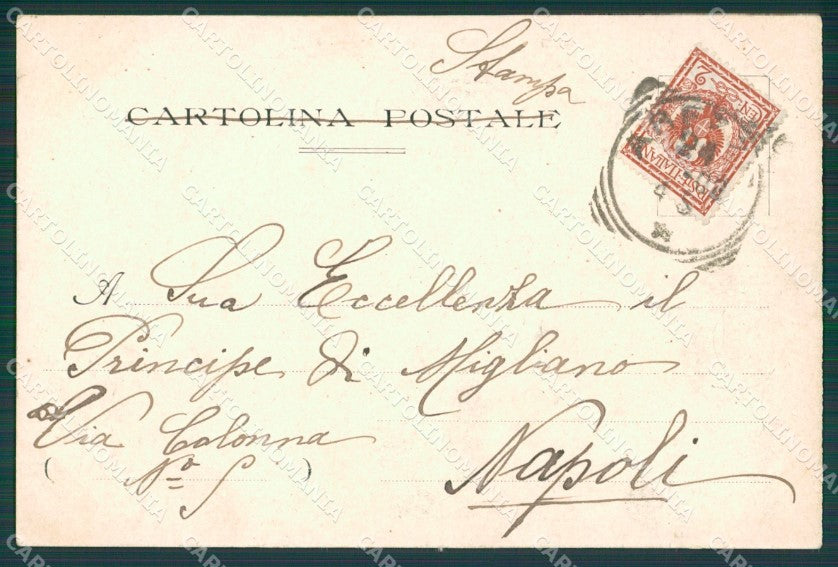 Stampa
CARTOLINA POSTALE
A Sua Eccellenza il
Principe di Migliano
Via Colonna
No
Napoli
2
CEN
POSTE ITALIANE
CARTOLINOMANIA